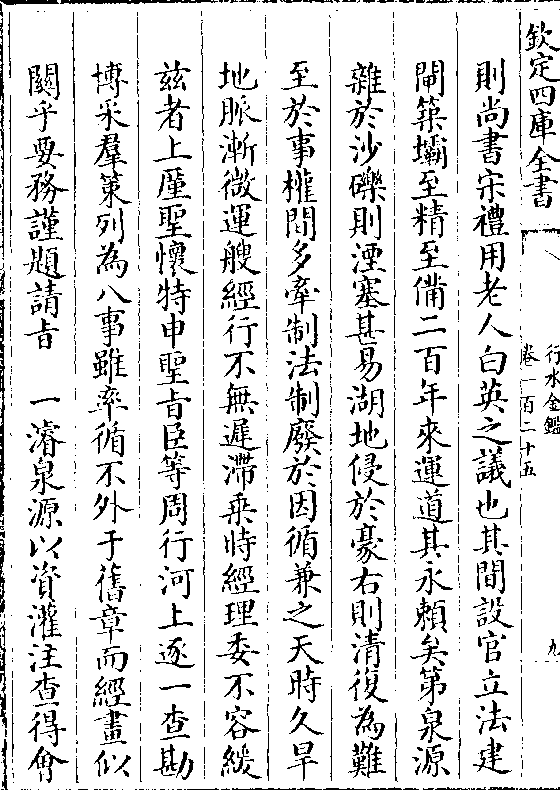 欽定四庫全書
行水金鑑
卷一百二十五
九
則尚書宋禮用老人白英之議也其間設官立法建
閘築壩至精至備二百年來運道其永賴矣第泉源
雜於沙礫則湮塞甚易湖地侵於豪右則清復為難
至於事權間多牽制法制廢於因循兼之天時久旱
地脈漸微運艘經行不無遲滯乘時經理委不容緩
兹者上厪聖懷特申聖旨臣等周行河上逐一查勘
博采羣策列為八事雖率循不外于舊章而經畫似
關乎要務謹題請旨　一濬泉源以資灌注查得會